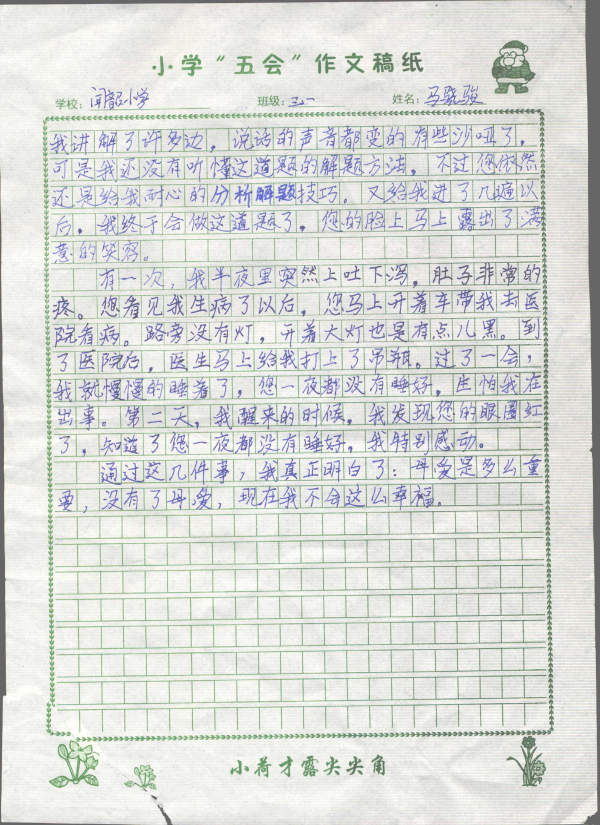 小学“五会”作文稿纸
学校：闻韶小学 班级：五一 姓名：马晓骏
我讲解了许多边，说话的声音都变的有些沙哑了，
可是我还没有听懂这道题的解题方法，不过您依然
还是给我耐心的分析解题技巧。又给我进了几遍以
后，我终于会做这道题了，您的脸上马上露出了满
意的笑容。
有一次，我半夜里突然上吐下泻，肚子非常的
疼。您看见我生病了以后，您马上开着车带我去医
院看病。路旁没有灯，开着大灯也是有点儿黑。到
了医院后，医生马上给我打上了吊瓶。过了一会，
我就慢慢的睡着了，您一夜都没有睡好，生怕我在
出事。第二天，我醒来的时候，我发现您的眼圈红
了，知道了您一夜都没有睡好，我特别感动。
通过这几件事，我真正明白了：母爱是多么重
要，没有了母爱，现在我不会这么幸福。
小荷才露尖尖角